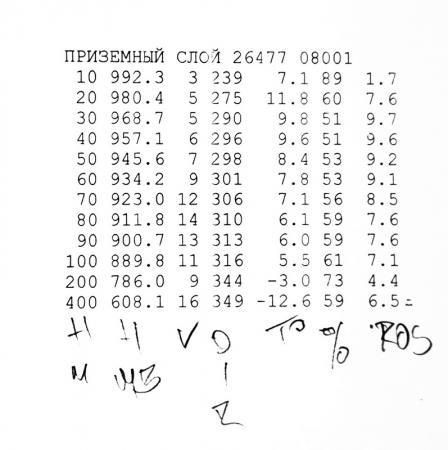 ПРИЗЕМНЫЙ СЛОЙ 26477 08001
10 992.3 3 239 7.1 89 1.7
20 980.4 5 275 11.8 60 7.6
30 968.7 5 290 9.8 51 9.7
40 957.1 6 296 9.6 51 9.6
50 945.6 7 298 8.4 53 9.2
60 934.2 9 301 7.8 53 9.1
70 923.0 12 306 7.1 56 8.5
80 911.8 14 310 6.1 59 7.6
90 900.7 13 313 6.0 59 7.6
100 889.8 11 316 5.5 61 7.1
200 786.0 9 344 -3.0 73 4.4
400 608.1 16 349 -12.6 59 6.5=
H H V D T° % ROS
M I
R